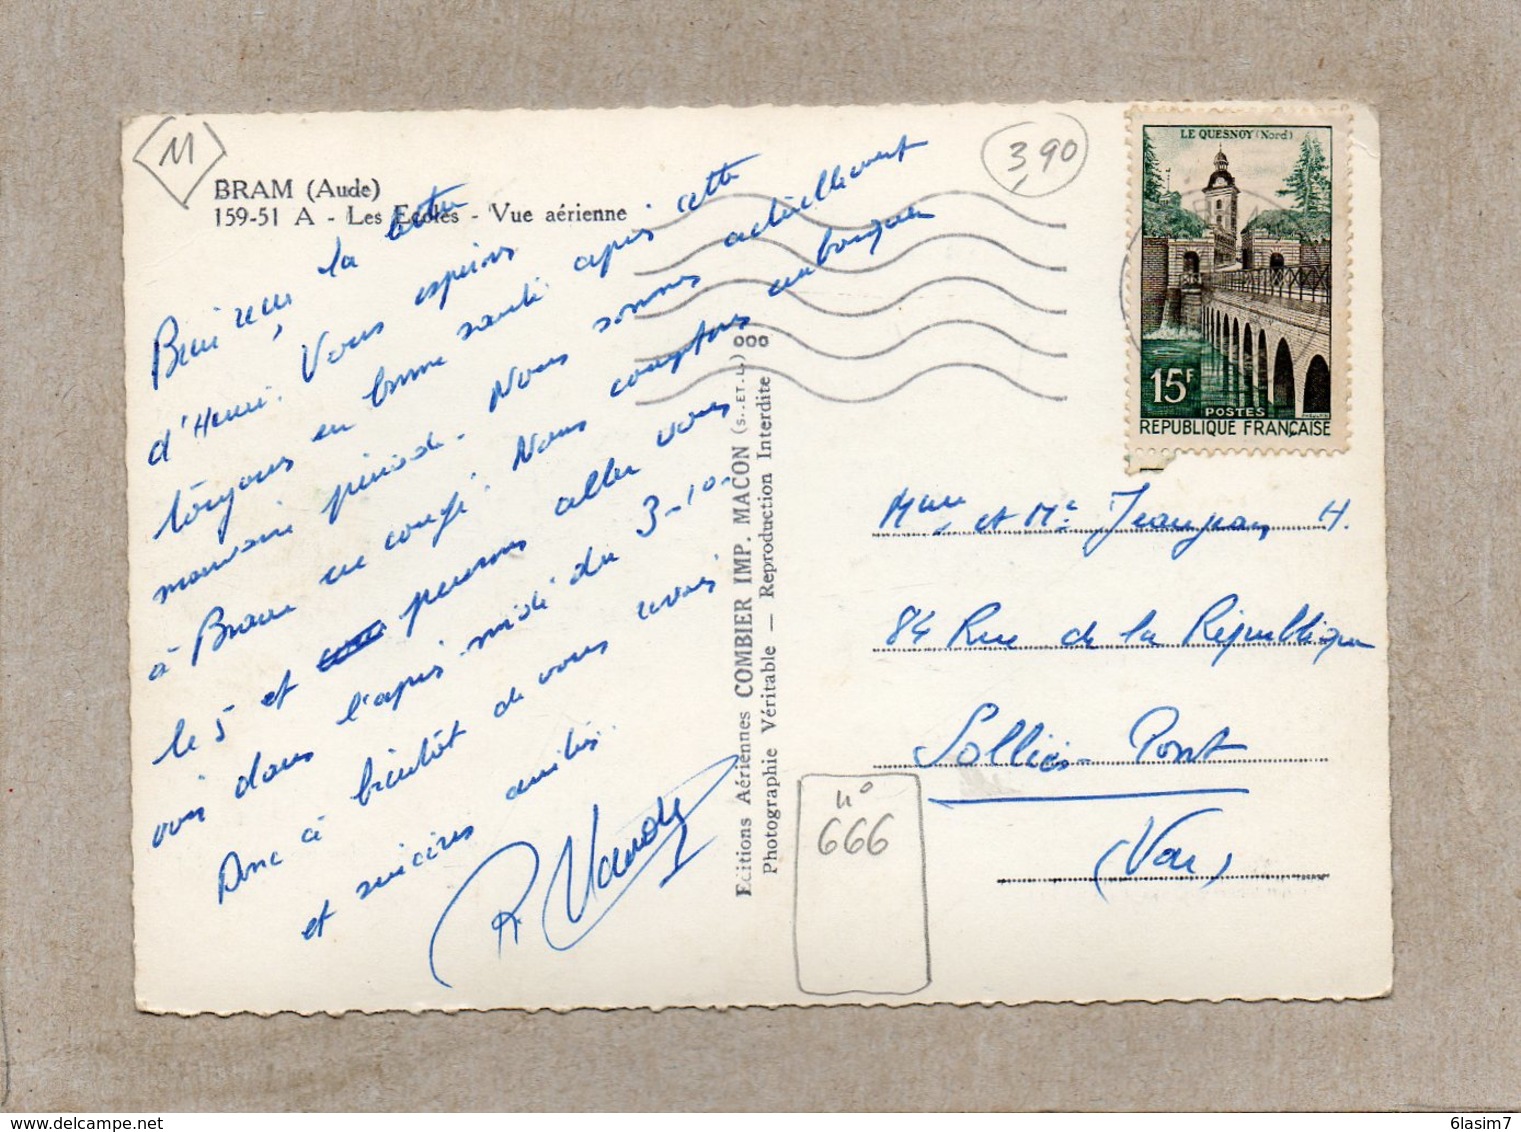 11
BRAM (Aude)
159-51 A - Les Ecoles - Vue aérienne
3,90
Bien reçu la lettre
d'Henri. Vous espérons
toujours en bonne santé après cette
mauvaise période. Nous sommes actuellement
à Bram en congé. Nous comptons embarquer
le 5 et pensons aller vous
voir dans l'après-midi du 3-10.
Donc à bientôt de vous revoir
et sincères amitiés.
Editions Aériennes COMBIER IMP. MACON (S.-ET-L.) ooo
Photographie Véritable — Reproduction Interdite
LE QUESNOY (Nord)
15F
POSTES
REPUBLIQUE FRANÇAISE
Mme et Mr Jeanjean H.
84 Rue de la République
Solliès-Pont
(Var)
n°
666
6lasim7